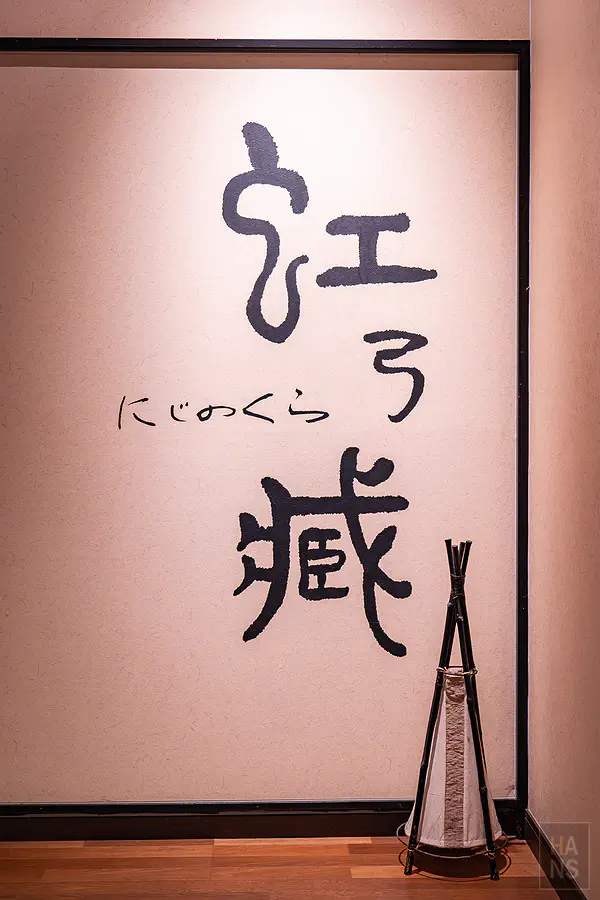 虹乃藏
にじのくら
HA
NS